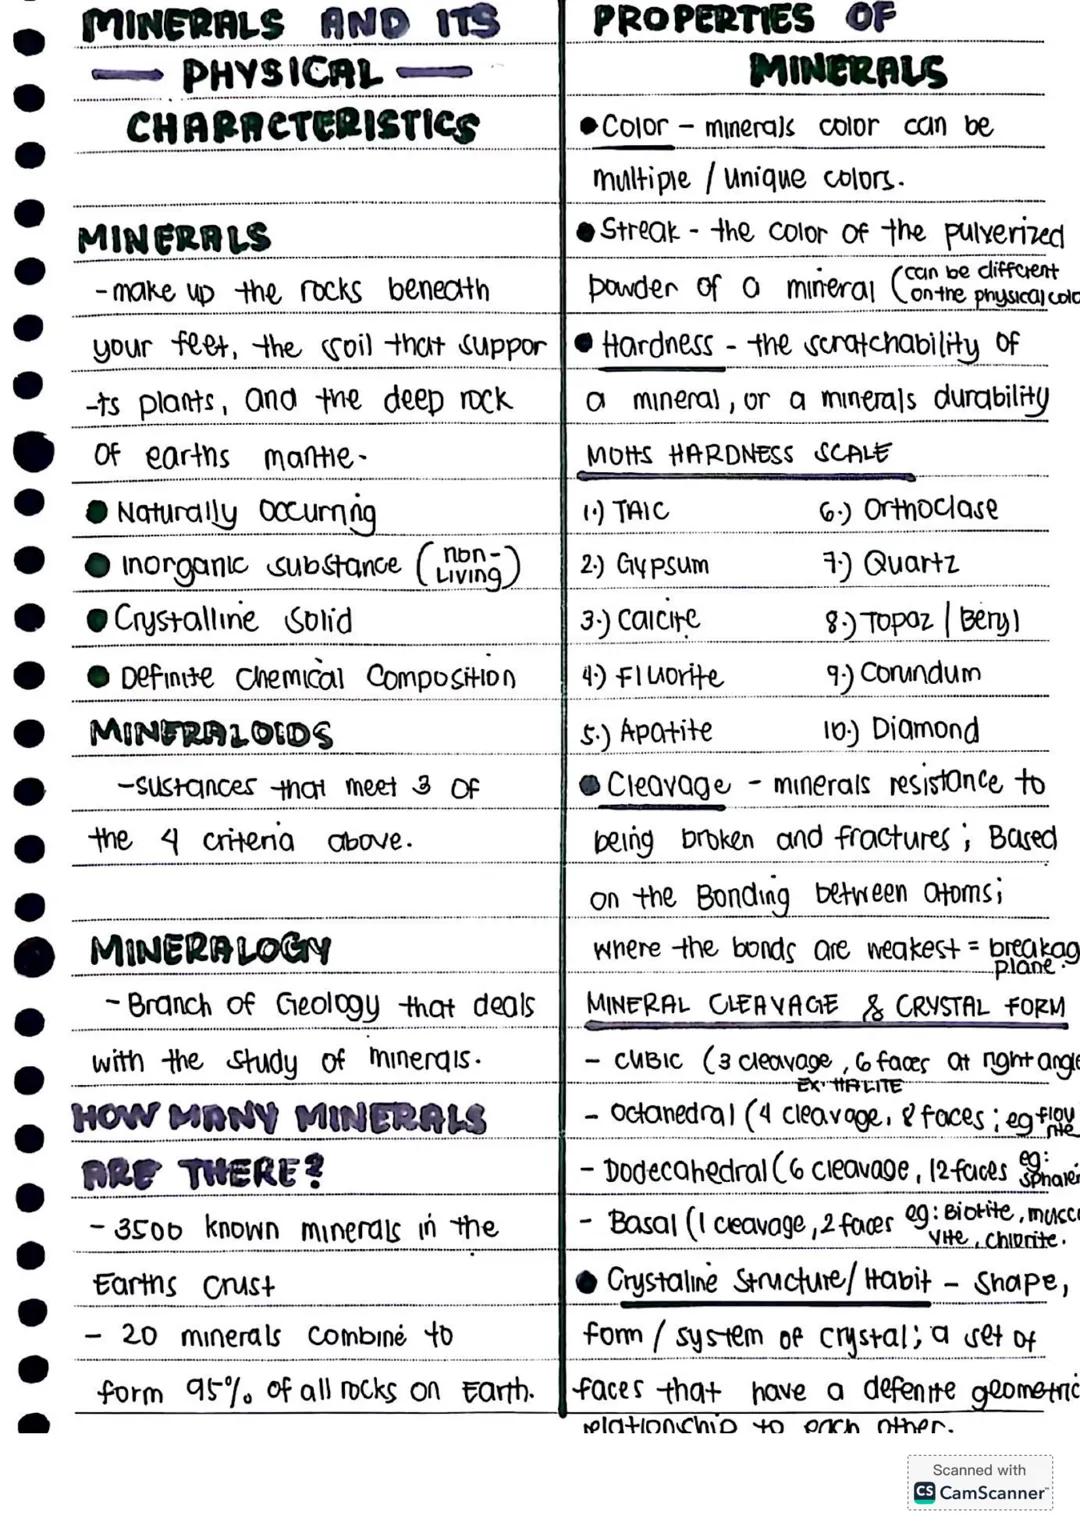 MINERALS AND ITS
PHYSICAL
CHARACTERISTICS
MINERALS
- make up the rocks beneath
your feet, the soil that suppor
-ts plants, and the deep rock
of earths mantle.
Naturally Occurring
Inorganic substance (non-Living)
Crystalline Solid
Definite Chemical Composition
MINERALOIDS
-sustances that meet 3 of
the 4 criteria above.
MINERALOGY
- Branch of Geology that deals
with the study of minerals.
HOW MANY MINERALS
ARE THERE?
- 3500 known minerals in the
Earths Crust
- 20 minerals combine to
form 95% of all rocks on Earth.
PROPERTIES OF
MINERALS
Color - minerals color can be
multiple / unique colors.
Streak - the color of the pulverized
powder of a mineral (can be different
on the physical colo
Hardness - the scratchability of
a mineral, or a minerals durability
MOHS HARDNESS SCALE
1.) Talc 6.) Orthoclase
2.) Gypsum 7.) Quartz
3.) Calcite 8.) Topaz / Beryl
4.) Fluorite 9.) Corundum
5.) Apatite 10.) Diamond
Cleavage - minerals resistance to
being broken and fractures; Based
on the Bonding between atoms;
where the bonds are weakest = breakag
plane.
MINERAL CLEAVAGE & CRYSTAL FORM
- CUBIC (3 cleavage, 6 faces at right angle
EX: HALITE
- Octahedral (4 cleavage, 8 faces; eg flou
rite
- Dodecahedral (6 cleavage, 12 faces eg:
sphaler
- Basal (1 cleavage, 2 faces eg: Biotite, musco
vite, chlorite.
Crystaline Structure/Habit - Shape,
form / system of crystal; a set of
faces that have a defenite geometric
relationship to each other.
Scanned with
CS CamScanner